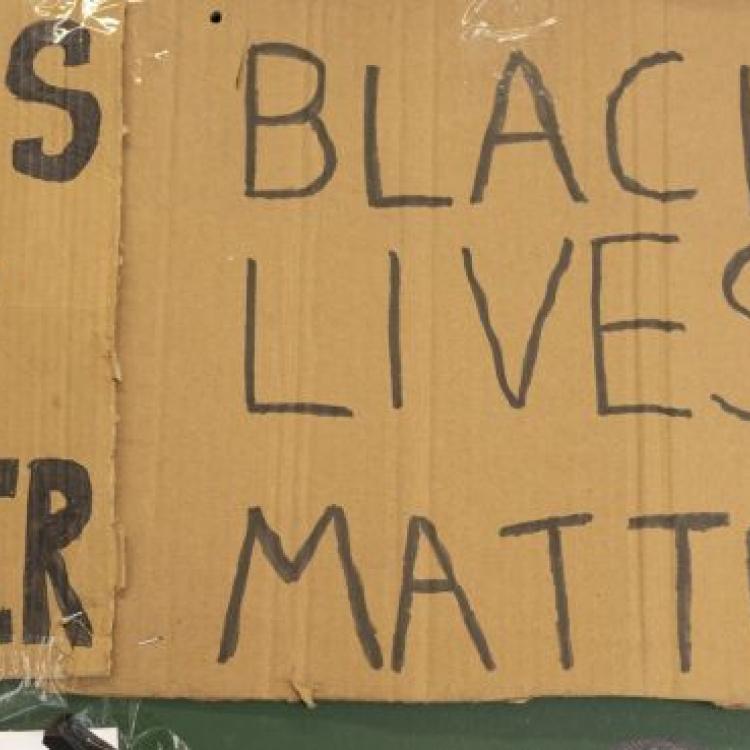 S
ER
BLAC
LIVES
MATT